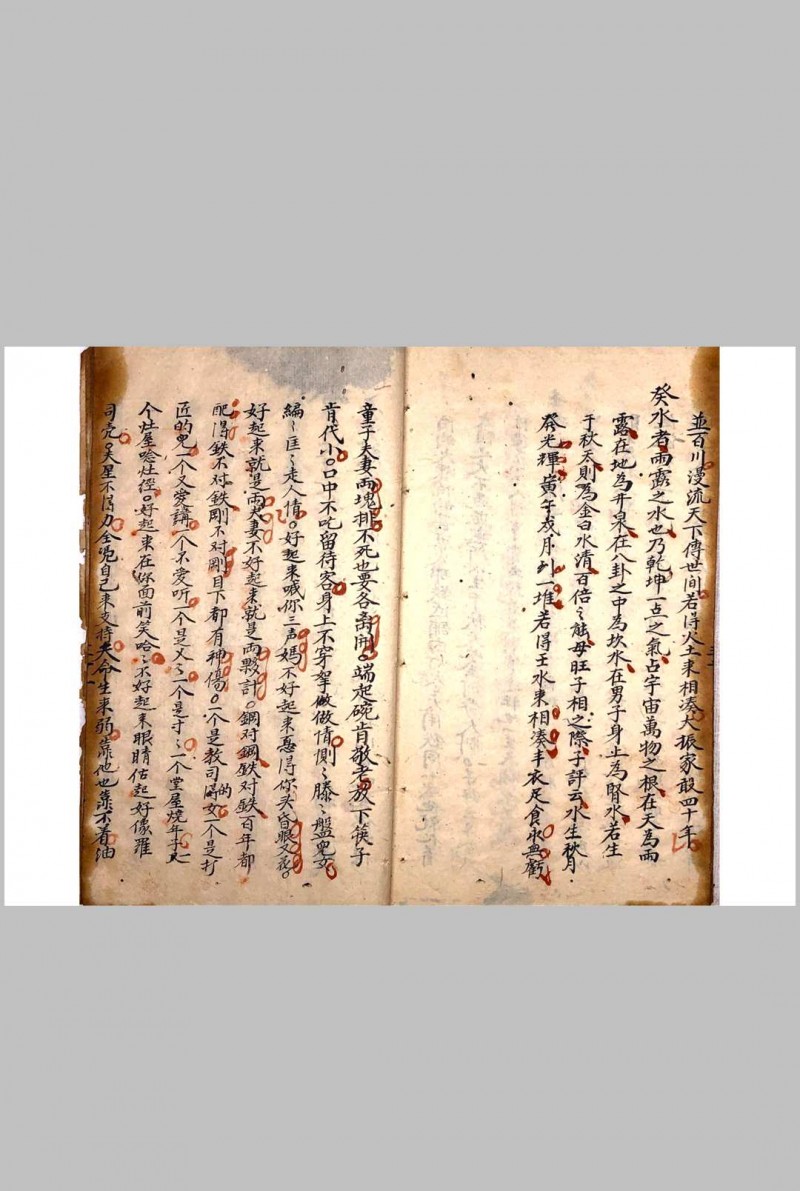 並百川漫流天下傳世间若得火土来相凑大振家敢四十年
癸水者雨露之水也乃乾坤一点之氣占宇宙萬物之根在天為雨
露在地為井泉在八卦之中為坎水在男子身上為腎水若生
于秋天則為金白水清百倍之能母旺子相之際子評云水生秋月
癸光輝寅午戍月列一堆若得壬水来相凑丰衣足食永無虧
童子夫妻兩塊排不死也要各离開端起碗肯敬老放下筷子
肯代小口中不吃留待客身上不穿拏做做情側〻滕〻盤兒女
編〻匡〻走人情好起来喊你三声媽不好起来惡得你头昏眼又花
好起来就是兩夫妻不好起来就是兩夥計鋼对鋼鉄对鉄百年都
配得鉄不对鉄剛不对剛目下都有神傷一个是教司的女一个是打
匠的兒一个又爱講一个不爱听一个是乂〻一个是寸〻一个堂屋燒年子火
个灶屋唸灶徑好起来在你面前笑哈〻不好起来眼睛估起好像羅
司壳夫星不得力全凴自己来支持夫命生来弱靠他也靠不着油